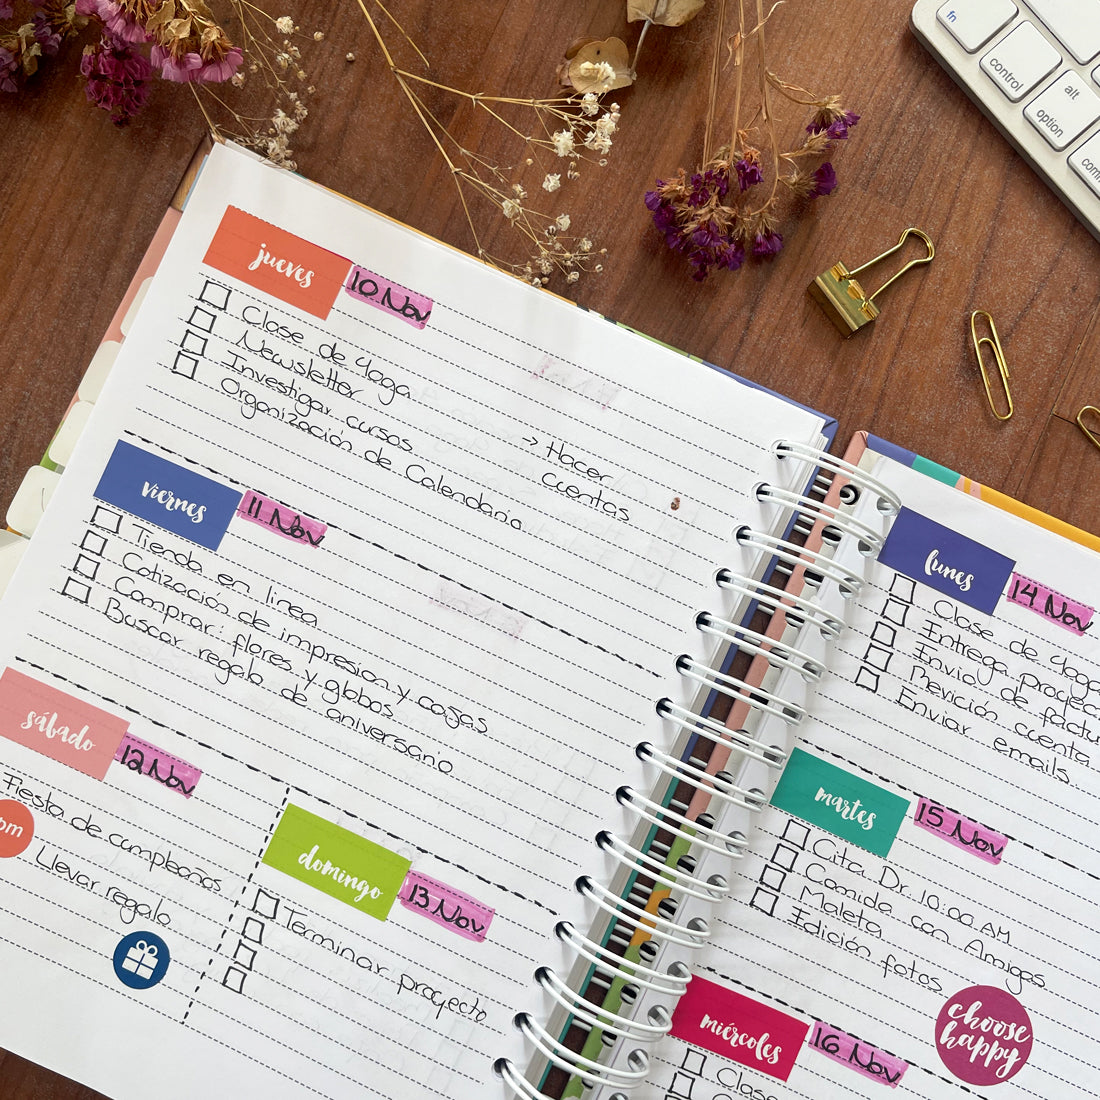 fn
control
alt
option
jueves
10 Nov
Clase de yoga
Newsletter
Investigar cursos
Organización de Calendario
-> Hacer
cuentas
viernes
11 Nov
Tienda en linea
Cotización de impresión y cosas
Comprar: flores y globos
Buscar regalo de aniversario
sábado
12 Nov
Fiesta de cumpleaños
pm
Llevar regalo
domingo
13 Nov
Terminar proyecto
lunes
14 Nov
Clase de yoga
Entrega proyec
Envio de factu
Revición cuenta
Enviar emails
martes
15 Nov
Cita Dr. 10:00 AM
Comida con Amigas
Maleta
Edición fotos
choose
happy
miércoles
16 Nov
Clase